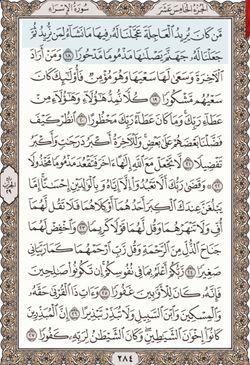 الجزء الخامس عشر سورة الإسراء
مَّن كَانَ يُرِيدُ ٱلْعَاجِلَةَ عَجَّلْنَا لَهُۥ فِيهَا مَا نَشَآءُ لِمَن نُّرِيدُ ثُمَّ
جَعَلْنَا لَهُۥ جَهَنَّمَ يَصْلَىٰهَا مَذْمُومًا مَّدْحُورًا ١٨ وَمَنْ أَرَادَ
ٱلْءَاخِرَةَ وَسَعَىٰ لَهَا سَعْيَهَا وَهُوَ مُؤْمِنٌ فَأُو۟لَٰٓئِكَ كَانَ
سَعْيُهُم مَّشْكُورًا ١٩ كُلًّا نُّمِدُّ هَٰٓؤُلَآءِ وَهَٰٓؤُلَآءِ مِنْ
عَطَآءِ رَبِّكَ وَمَا كَانَ عَطَآءُ رَبِّكَ مَحْظُورًا ٢٠ ٱنظُرْ كَيْفَ
فَضَّلْنَا بَعْضَهُمْ عَلَىٰ بَعْضٍ وَلَلْءَاخِرَةُ أَكْبَرُ دَرَجَٰتٍ وَأَكْبَرُ
تَفْضِيلًا ٢١ لَّا تَجْعَلْ مَعَ ٱللَّهِ إِلَٰهًا ءَاخَرَ فَتَقْعُدَ مَذْمُومًا مَّخْذُولًا
٢٢ وَقَضَىٰ رَبُّكَ أَلَّا تَعْبُدُوٓا۟ إِلَّآ إِيَّاهُ وَبِٱلْوَٰلِدَيْنِ إِحْسَٰنًا إِمَّا
يَبْلُغَنَّ عِندَكَ ٱلْكِبَرَ أَحَدُهُمَآ أَوْ كِلَاهُمَا فَلَا تَقُل لَّهُمَآ
أُفٍّ وَلَا تَنْهَرْهُمَا وَقُل لَّهُمَا قَوْلًا كَرِيمًا ٢٣ وَٱخْفِضْ لَهُمَا
جَنَاحَ ٱلذُّلِّ مِنَ ٱلرَّحْمَةِ وَقُل رَّبِّ ٱرْحَمْهُمَا كَمَا رَبَّيَانِى
صَغِيرًا ٢٤ رَّبُّكُمْ أَعْلَمُ بِمَا فِى نُفُوسِكُمْ إِن تَكُونُوا۟ صَٰلِحِينَ
فَإِنَّهُۥ كَانَ لِلْأَوَّٰبِينَ غَفُورًا ٢٥ وَءَاتِ ذَا ٱلْقُرْبَىٰ حَقَّهُۥ
وَٱلْمِسْكِينَ وَٱبْنَ ٱلسَّبِيلِ وَلَا تُبَذِّرْ تَبْذِيرًا ٢٦ إِنَّ ٱلْمُبَذِّرِينَ
كَانُوٓا۟ إِخْوَٰنَ ٱلشَّيَٰطِينِ وَكَانَ ٱلشَّيْطَٰنُ لِرَبِّهِۦ كَفُورًا ٢٧
٢٨٤